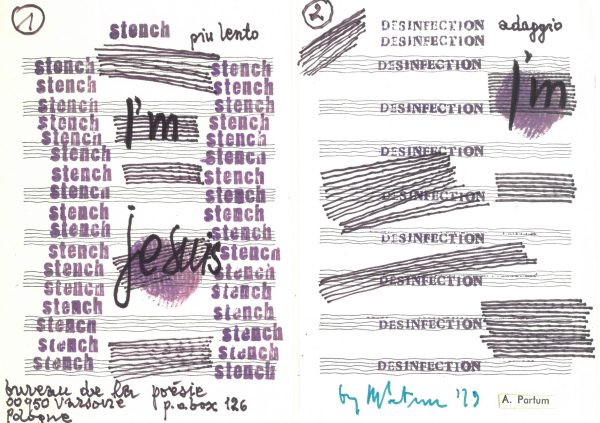 1
stench
piu lento
stench stench
stench stench
stench stench
I'm
stench stench
stench stench
stench stench
stench stench
stench stench
stench stench
stench stench
stench stench
je suis
stench stench
stench stench
stench stench
stench stench
stench stench
stench stench
bureau de la poésie
00950 Varsovie p.o.box 126
Pologne
2
DESINFECTION
adaggio
DESINFECTION
DESINFECTION
I'm
DESINFECTION
DESINFECTION
DESINFECTION
DESINFECTION
DESINFECTION
DESINFECTION
DESINFECTION
by Partum '79
A. Partum